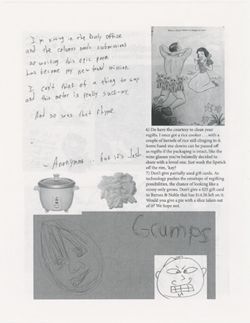 I'm sitting in the Daily office
and the column needs submissions
so writing this epic poem
has become my new found mission.
I can't think of a thing to say
and this meter is really
And so was that rhyme.
Anonymous
6) Do have the courtesy to clean your
regifts. I once got a rice cooker . . . with a
couple of kernels of rice still clinging to it.
Some hand-me-downs can be passed off
as regifts if the packaging is intact, like the
wine glasses you've belatedly decided to
share with a loved one. Just wash the lipstick
off the rim, 'kay?
7) Don't give partially used gift cards. As
technology pushes the envelope of regifting
possibilities, the chance of looking like a
stooge only grows. Don't give a $25 gift card
to Barnes & Noble that has left on it.
Would you give a pie with a slice taken out
of it? We hope not.
Grumps